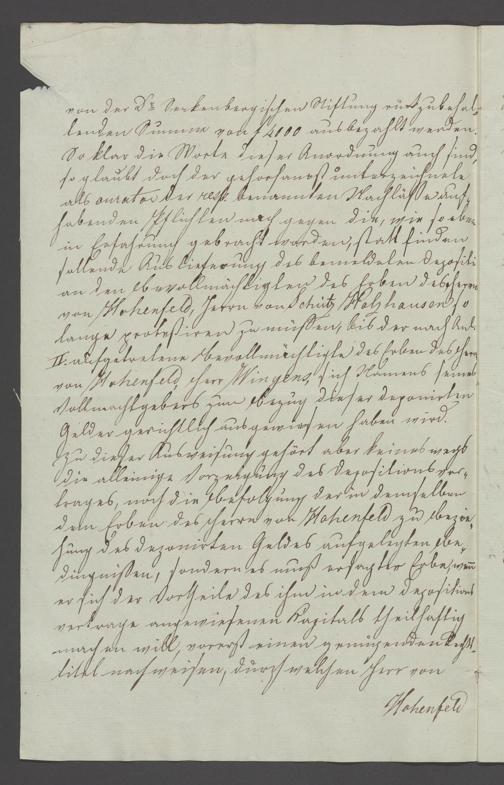 von der Dr. Senkenbergischen Stiftung rückzubehal-
tenden Summe von f 4000 ausbezahlt werden.
So klar die Worte dieser Anordnung auch sind,
so glaubt doch der gehorsamst unterzeichnete
als curator der resp. benannten Nachläße auf-
habenden Pflichten nach gegen die, wie so eben
in Erfahrung gebracht worden, statt finden
sollende Auslieferung des bemeldeten Depositi
an den Bevollmächtigten des Erben des Herrn
von Hohenfeld, Herrn von Schütz Holzhausen, so
lange protestiren zu müßen, bis der nach
II. aufgetretene Bevollmächtigte des Erben des Herrn
von Hohenfeld, Herr Wingens, sich Namens seines
Vollmachtgebers zum Bezug dieser deponirten
Gelder gerichtlich ausgewiesen haben wird.
Zu dieser Ausweisung gehört aber keineswegs
die alleinige Vorzeigung des Depositionsver-
trages, noch die Befolgung der in demselben
dem Erben des Herrn von Hohenfeld zu Bezie-
hung des deponirten Geldes aufgelegten Be-
dingnißen, sondern es muß ersagter Erbe, wenn
er sich der Vortheile des ihm in dem Depositions
vertrage angewiesenen Kapitals theilhaftig
machen will, vorerst einen genügenden Rechts-
titel nachweisen, durch welchen Herr von
Hohenfeld